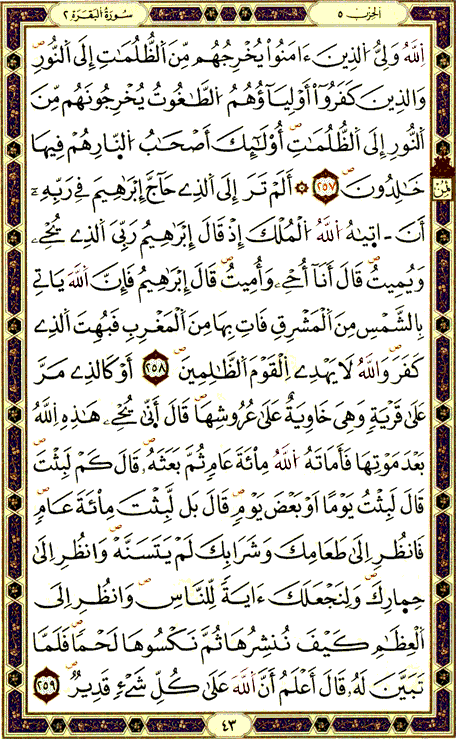 الحِزْب ٥
سُورَةُ البَقَرَة ٢
اَللَّهُ وَلِيُّ الذِينَ ءَامَنُواْ يُخْرِجُهُم مِّنَ اَلظُّلُمَٰتِ إِلَى اَلنُّورِ
وَالذِينَ كَفَرُوٓاْ أَوْلِيَآؤُهُمُ اُلطَّٰغُوتُ يُخْرِجُونَهُم مِّنَ
اَلنُّورِ إِلَى اَلظُّلُمَٰتِ أُوْلَٰٓئِكَ أَصْحَٰبُ اُلنَّارِ هُمْ فِيهَا
خَٰلِدُونَ ٢٥٧ ۞ أَلَمْ تَرَ إِلَى اَلذِے حَآجَّ إِبْرَٰهِيمَ فِے رَبِّهِۦٓ
أَنَ اٰتَيٰهُ اُللَّهُ اُلْمُلْكَ إِذْ قَالَ إِبْرَٰهِيمُ رَبِّيَ اَلذِے يُحْےِۦ
وَيُمِيتُ قَالَ أَنَآ أُحْےِۦ وَأُمِيتُ قَالَ إِبْرَٰهِيمُ فَإِنَّ اَللَّهَ يَاتِے
بِالشَّمْسِ مِنَ اَلْمَشْرِقِ فَاتِ بِهَا مِنَ اَلْمَغْرِبِ فَبُهِتَ اَلذِے
كَفَرَ وَاللَّهُ لَا يَهْدِے اِلْقَوْمَ اَلظَّٰلِمِينَ ٢٥٨ أَوْ كَالذِے مَرَّ
عَلَىٰ قَرْيَةٍ وَهِيَ خَاوِيَةٌ عَلَىٰ عُرُوشِهَا قَالَ أَنّ۪ىٰ يُحْےِۦ هَٰذِهِ اِللَّهُ
بَعْدَ مَوْتِهَا فَأَمَاتَهُ اُللَّهُ مِاْئَةَ عَامٍ ثُمَّ بَعَثَهُۥ قَالَ كَمْ لَبِثْتَ
قَالَ لَبِثْتُ يَوْمًا اَوْ بَعْضَ يَوْمٍ قَالَ بَل لَّبِثْتَ مِاْئَةَ عَامٍ
فَانظُرِ اِلَىٰ طَعَامِكَ وَشَرَابِكَ لَمْ يَتَسَنَّهْ وَانظُرِ اِلَىٰ
حِمٰارِكَ وَلِنَجْعَلَكَ ءَايَةً لِّلنَّاسِ وَانظُرِ اِلَى
اَلْعِظَٰمِ كَيْفَ نُنشِرُهَا ثُمَّ نَكْسُوهَا لَحْمًا فَلَمَّا
تَبَيَّنَ لَهُۥ قَالَ أَعْلَمُ أَنَّ اَللَّهَ عَلَىٰ كُلِّ شَےْءٍ قَدِيرٌ ٢٥٩
٤٣